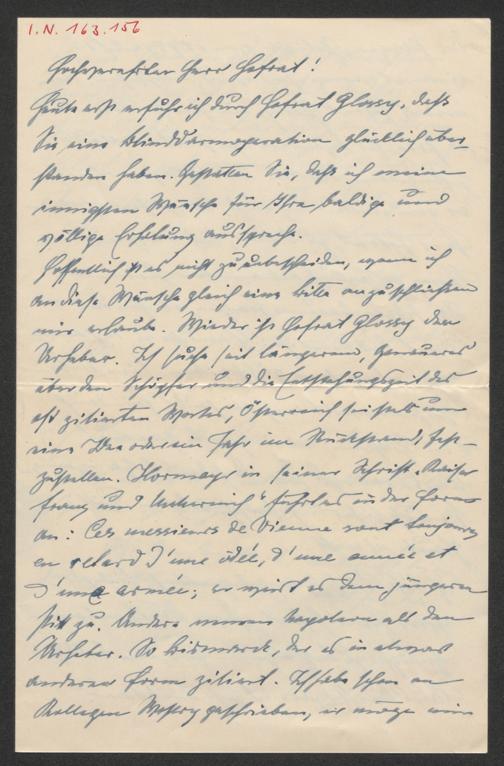 I.N. 163.156
Hochverehrter Herr Hofrat!
Heute erst erfuhr ich durch Hofrat Glossy, daß
Sie eine Blinddarmoperation glücklich über-
standen haben. Gestatten Sie, daß ich meine
innigsten Wünsche für Ihre baldige und
völlige Erholung ausspreche.
Hoffentlich ist es nicht zu unbescheiden, wenn ich
an diese Wünsche gleich eine Bitte anzuschließen
mir erlaube. Wieder ist Hofrat Glossy der
Urheber. Ich suche seit längerem, Genaueres
über den Schöpfer und die Entstehungszeit des
oft zitierten Wortes, Österreich sei stets um
eine Idee oder ein Jahr im Rückstand, fest-
zustellen. Hormayr in seiner Schrift „Kaiser
Franz und Metternich" führt es in der Form
an: Ces messieurs de Vienne sont toujours
en retard d'une idée, d'une année et
d'une armée; er weist es dem jüngeren
Pitt zu. Andere nennen Napoleon als den
Urheber. So Bismarck, der es in etwas
anderer Form zitiert. Ich habe schon an
Kollegen geschrieben, er möge mir